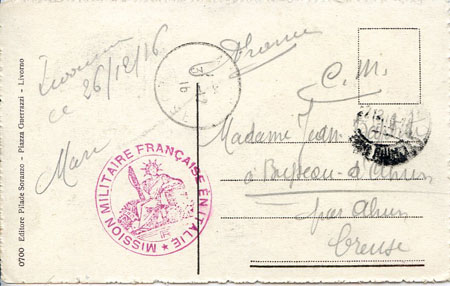 0700 Editore Pilade Soranno - Piazza Guerrazzi - Livorno
Livourne
ce 26/12/16
Marc
MISSION MILITAIRE FRANÇAISE EN ITALIE
C. M.
Madame Jean
à Busseau-d'Ahun
par Ahun
Creuse